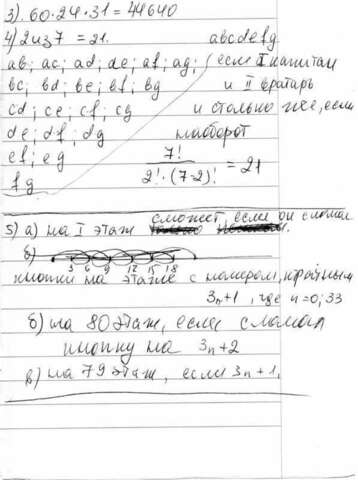 3). 60·24·31 = 44640
4) 2 из 7 = 21. abcdefg
ab; ac; ad; de; af; ag; (если I капитан
bc; bd; be; bf; bg и II вратарь
cd; ce; cf; cg и столько же, если
de; df; dg наоборот
ef; eg 7! / 2!·(7-2)! = 21
fg
5) а) на I этаж сможет, если он сломал
б) 3 6 9 12 15 18
кнопки на этаже с номером, кратным
3n+1, где n=0;33
б) на 80 этаж, если сломал
кнопку на 3n+2
в) на 79 этаж, если 3n+1.